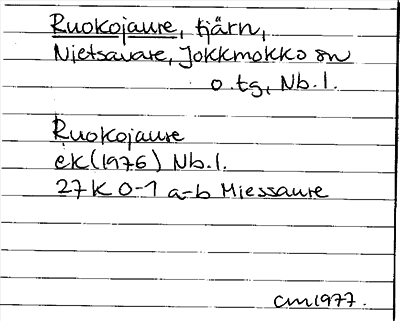 Ruokojaure, tjärn,
Njetsavare, Jokkmokks sn
o. tg, Nb. l.
Ruokojaure
ek (1976) Nb. l.
27 K 0-1 a-b Miessaure
CM 1977.